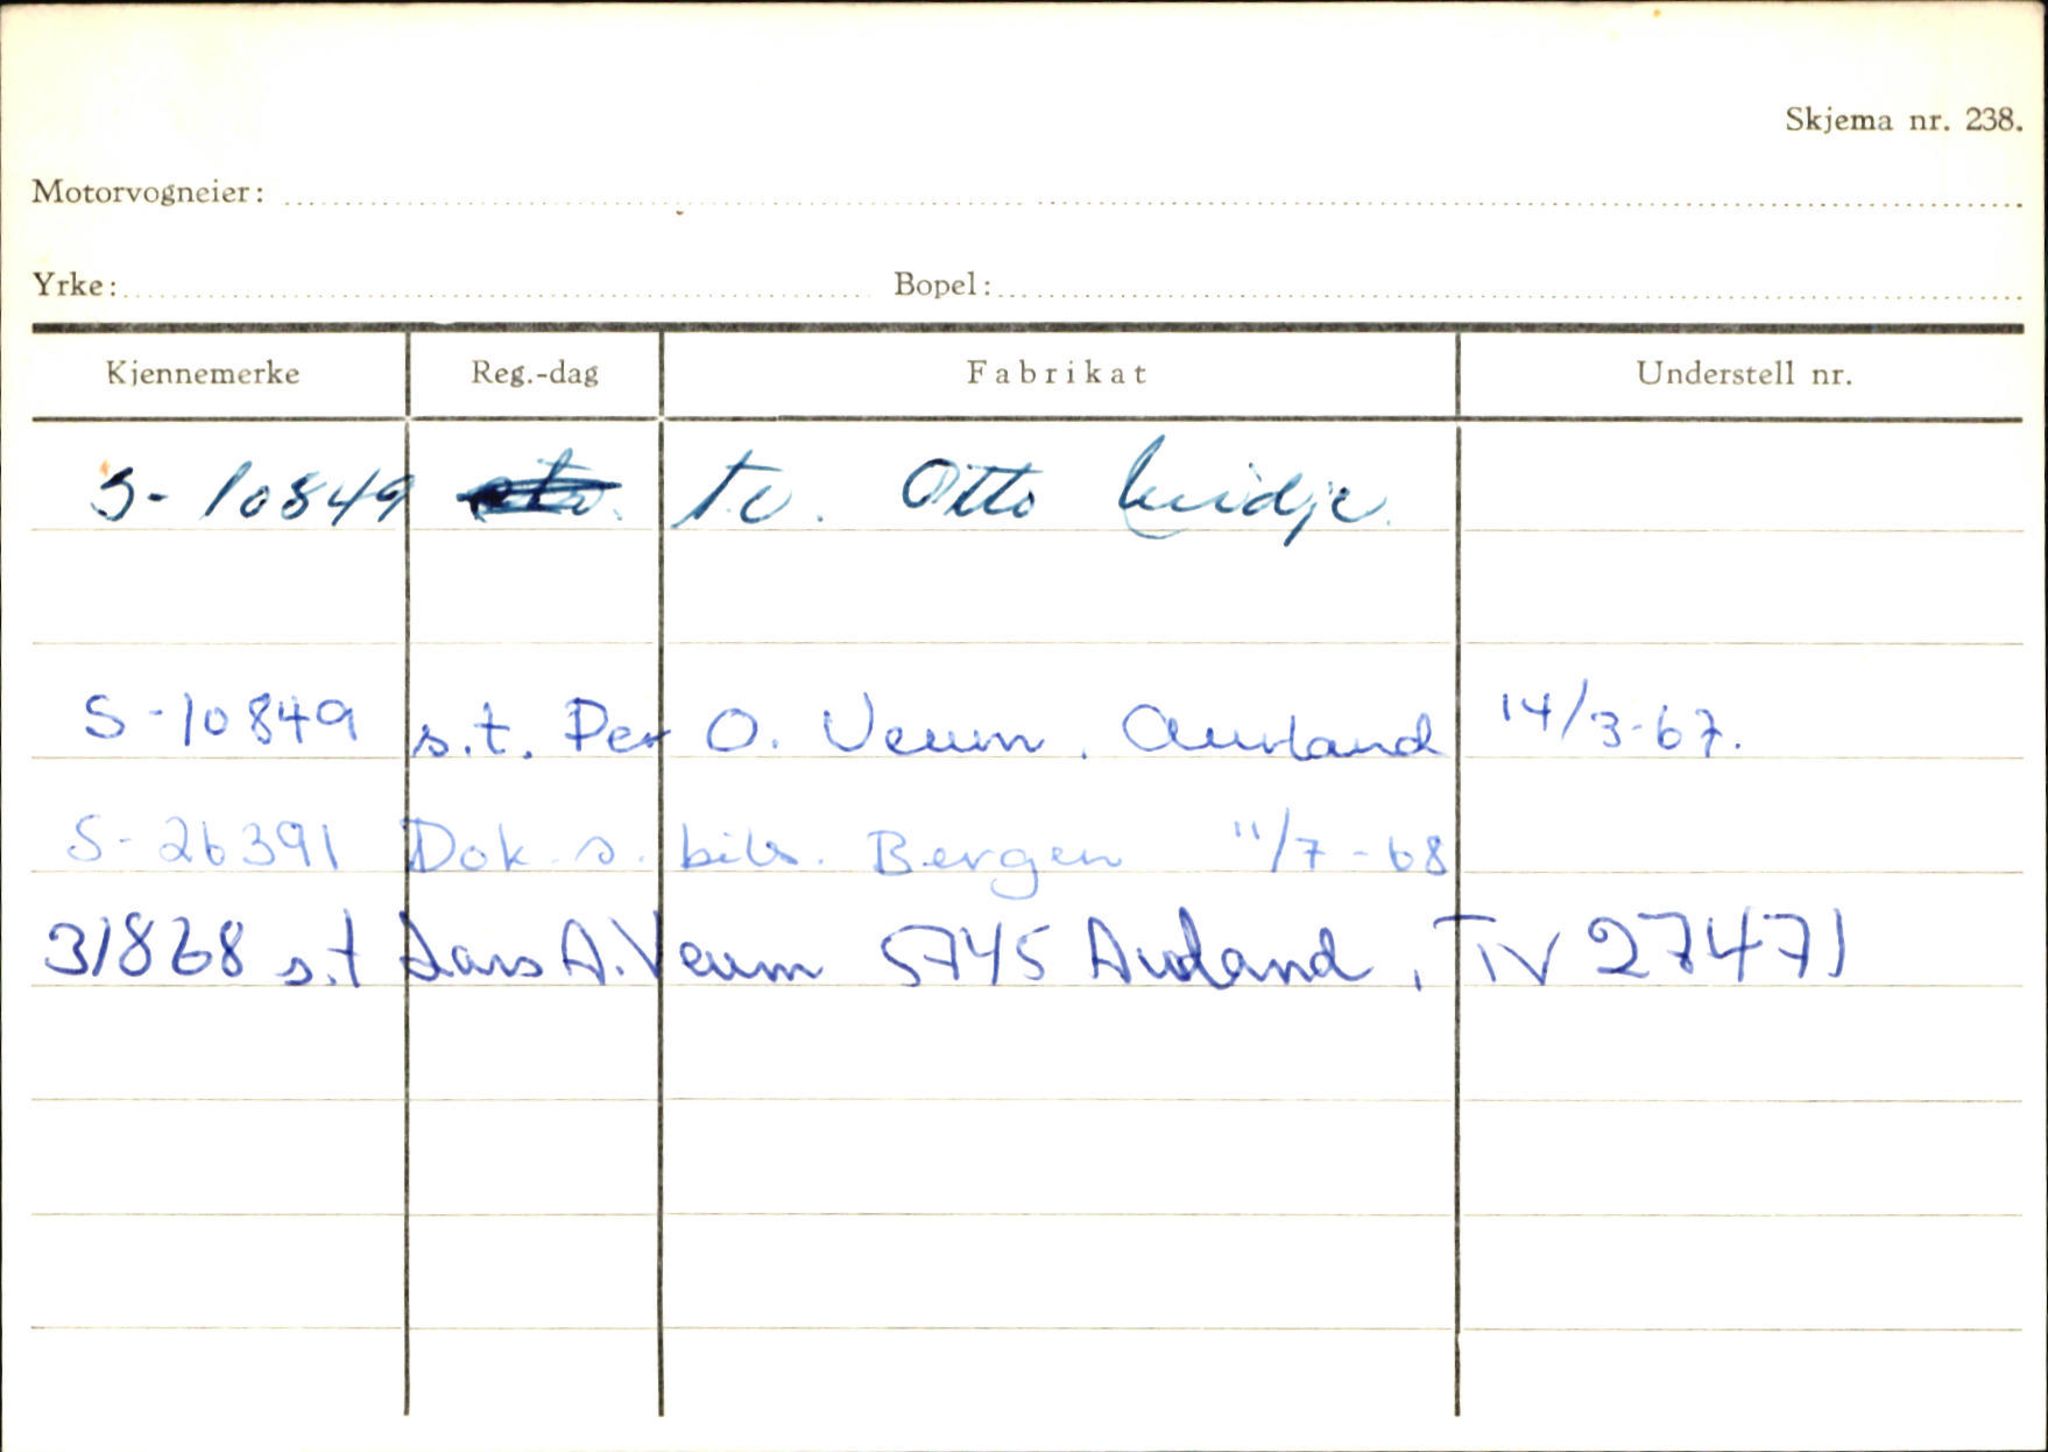 Skjema nr. 238.
Motorvogneier:
Yrke: Bopel:
Kjennemerke Reg.-dag Fabrikat Understell nr.
S-10849 Otto
S-10849 s.t. Per O. Veum. Aurland 14/3-67.
S-26391 Dok s. bils. Bergen 11/7-68
31868 s.t Lars A. Veum 5745 Aurland, TV 27471